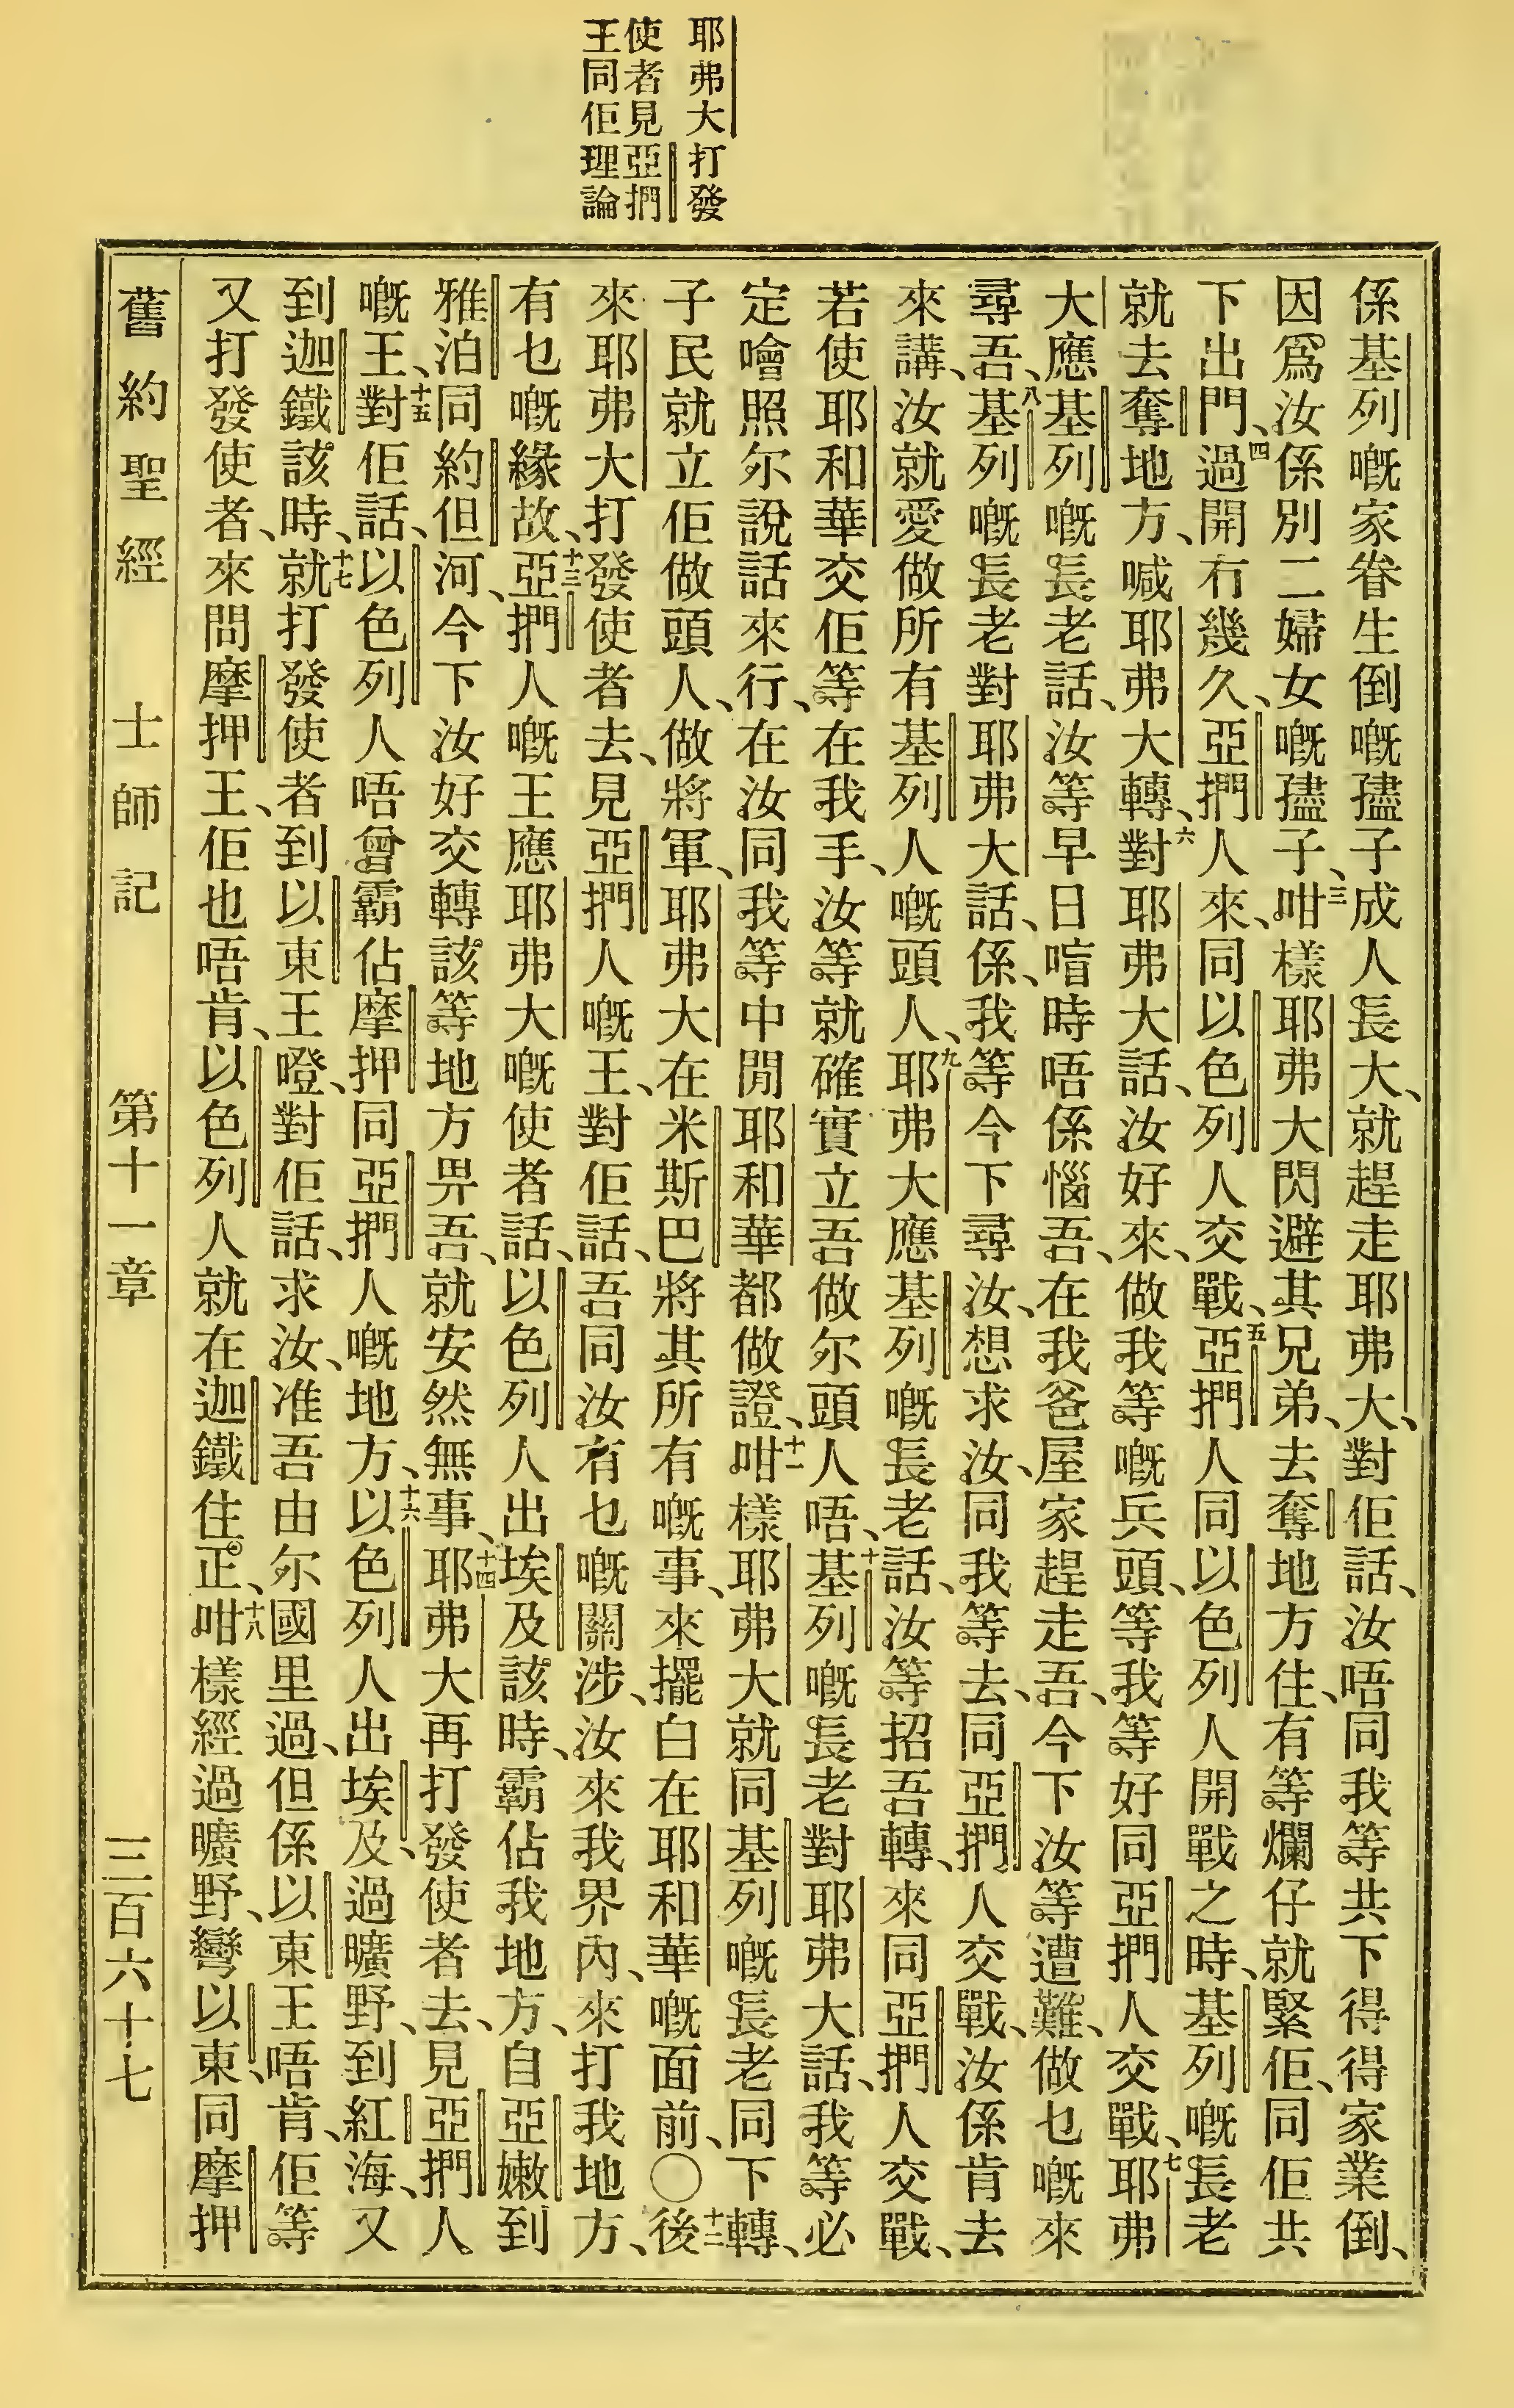 耶弗大打發
使者見亞捫
王同佢理論
係基列嘅家眷生倒嘅孻子成人長大、就趕走耶弗大、對佢話、汝唔同我等共下得得家業倒、
因爲汝係別二婦女嘅孻子、三咁樣耶弗大閃避其兄弟、去奪地方住、有等爛仔就緊佢、同佢共
下出門、四過開冇幾久、亞捫人來、同以色列人交戰、五亞捫人同以色列人開戰之時、基列嘅長老
就去奪地方、喊耶弗大轉、六對耶弗大話、汝好來、做我等嘅兵頭、等我等好同亞捫人交戰、七耶弗
大應基列嘅長老話、汝等早日唔時唔係惱吾、在我爸屋家趕走吾、今下汝等遭難、做乜嘅來
尋吾、八基列嘅長老對耶弗大話、係、我等今下尋汝、想求汝、同我等去、同亞捫人交戰、汝係肯去
來講、汝就愛做所有基列人嘅頭人、九耶弗大應基列嘅長老話、汝等招吾轉、來同亞捫人交戰、
若使耶和華交佢等在我手、汝等就確實立吾做尔頭人唔、十基列嘅長老對耶弗大話、我等必
定噲照尔說話來行、在汝同我等中閒耶和華都做證、十一咁樣耶弗大就同基列嘅長老同下轉、
子民就立佢做頭人、做將軍、耶弗大在米斯巴將其所有嘅事、來擺白在耶和華嘅面前、〇十二後
來耶弗大打發使者去、見亞捫人嘅王、對佢話、吾同汝有乜嘅關涉、汝來我界內、來打我地方、
有乜嘅緣故、十三亞捫人嘅王應耶弗大嘅使者話、以色列人出埃及該時、霸佔我地方、自亞嫩到
雅泊同約但河、今下汝好交轉該等地方畀吾、就安然無事、十四耶弗大再打發使者去、見亞捫人
嘅王、十五對佢話、以色列人唔曾霸佔摩押同亞捫人嘅地方、十六以色列人出埃及、過曠野、到紅海、又
到迦鐵該時、十七就打發使者到以東王嶝、對佢話、求汝、准吾由尔國里過、但係以東王唔肯、佢等
又打發使者、來問摩押王、佢也唔肯、以色列人就在迦鐵住正、十八咁樣經過曠野、彎以東、同摩押
舊約聖經 士師記 第十一章 三百六十七